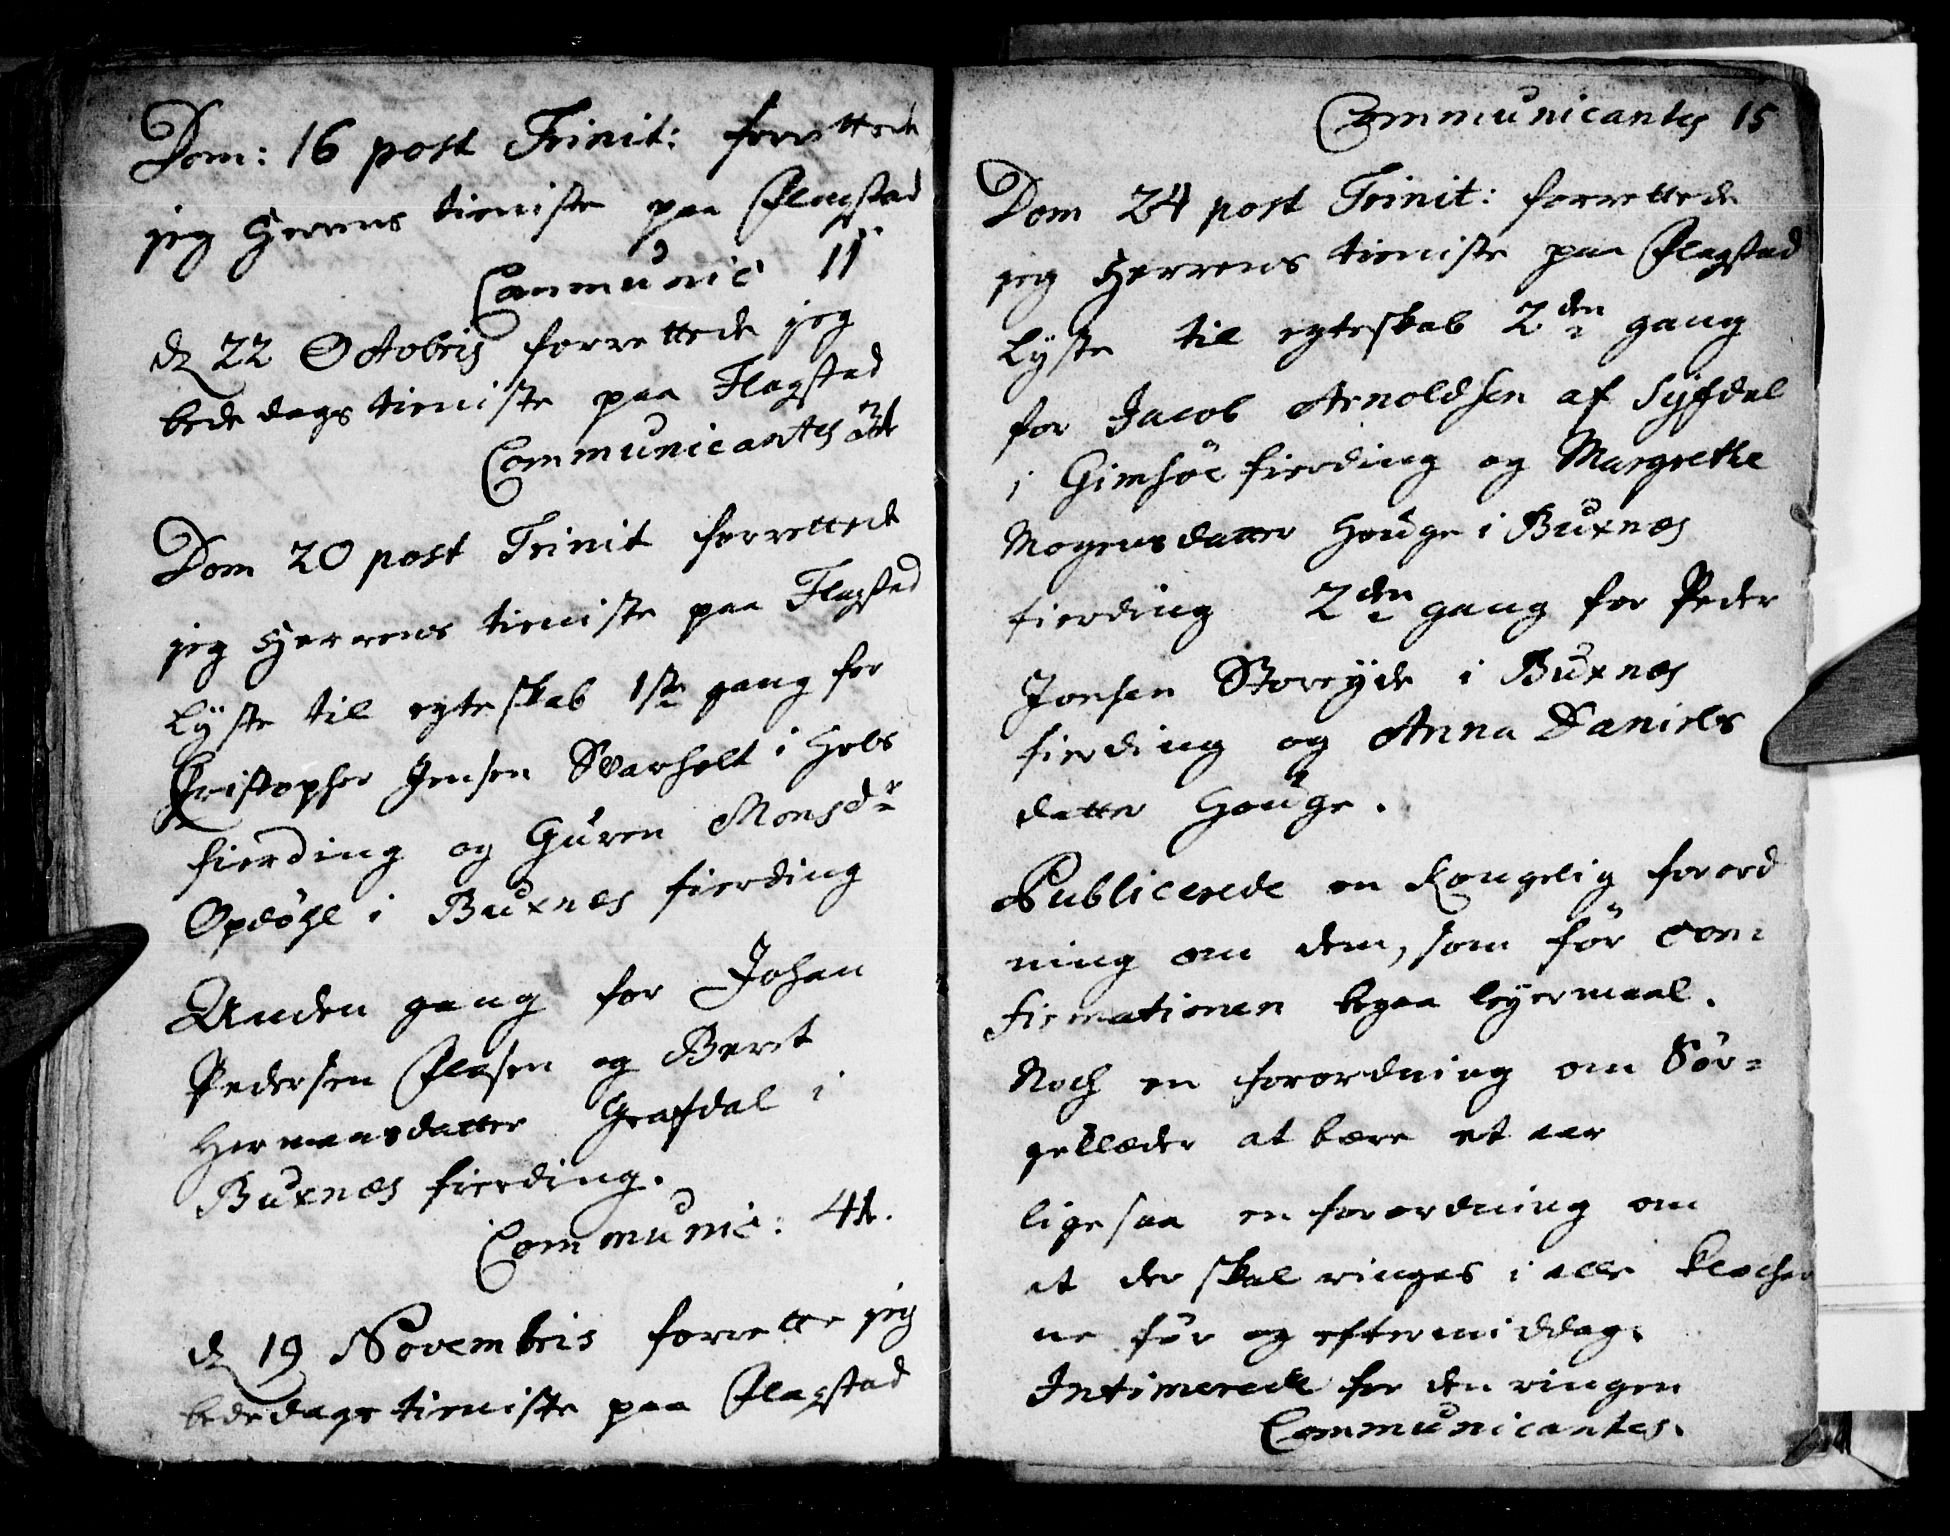 Dom: 16 post Trinit: forrettede
jeg Herrens tieniste paa Flagstad
Communic 11
d 22 Octobris forrettede jeg
bededags tieniste paa Flagstad
Communicantes
Dom 20 post Trinit forrettede
jeg Herrens tieniste paa Flagstad
Lyste til egteskab 1ste gang for
Christopher Jensen Svarholt i Hols
fierding og Guren Monsdr
Opdøhl i Buxnes fierding
Anden gang for Johan
Pedersen og Beret
Hermansdatter Grafdal i
Buxnæs fierding.
Communic: 41.
d 19 Novembris forrette jeg
bededags tieniste paa Flagstad
Communicantes 15
Dom 24 post Trinit: forrettede
jeg Herrens tieniste paa Flagstad
Lyste til egteskab 2den gang
for Jacob Arnoldsen af Syfdal
i Gimsöe fierding og Margrethe
Mogensdatter Houge i Buxnæs
fierding 2den gang for Peder
Jonsen Storeyde i Buxnæs
fierding og Anna Daniels
datter Houge.
Publicerede en Kongelig forord
ning om dem, som før con:
firmationen begaa leyermaal.
Noch en forordning om Sör=
geklæder at bære et aar
ligesaa en forordning om
at der skal ringes i alle klocher
ne før og eftermiddag.
Intimerede for den ringen
Communicantes.